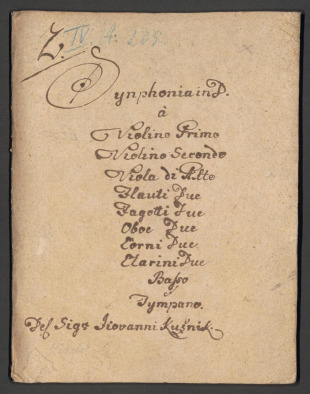 Z. IV A. 285.
Synphonia in D.
à
Violino Primo
Violino Secondo
Viola di Alto
Flauti Due
Fagotti Due
Oboe Due
Corni Due
Clarini Due
Basso
Tÿmpano.
Del Sigr Giovanni